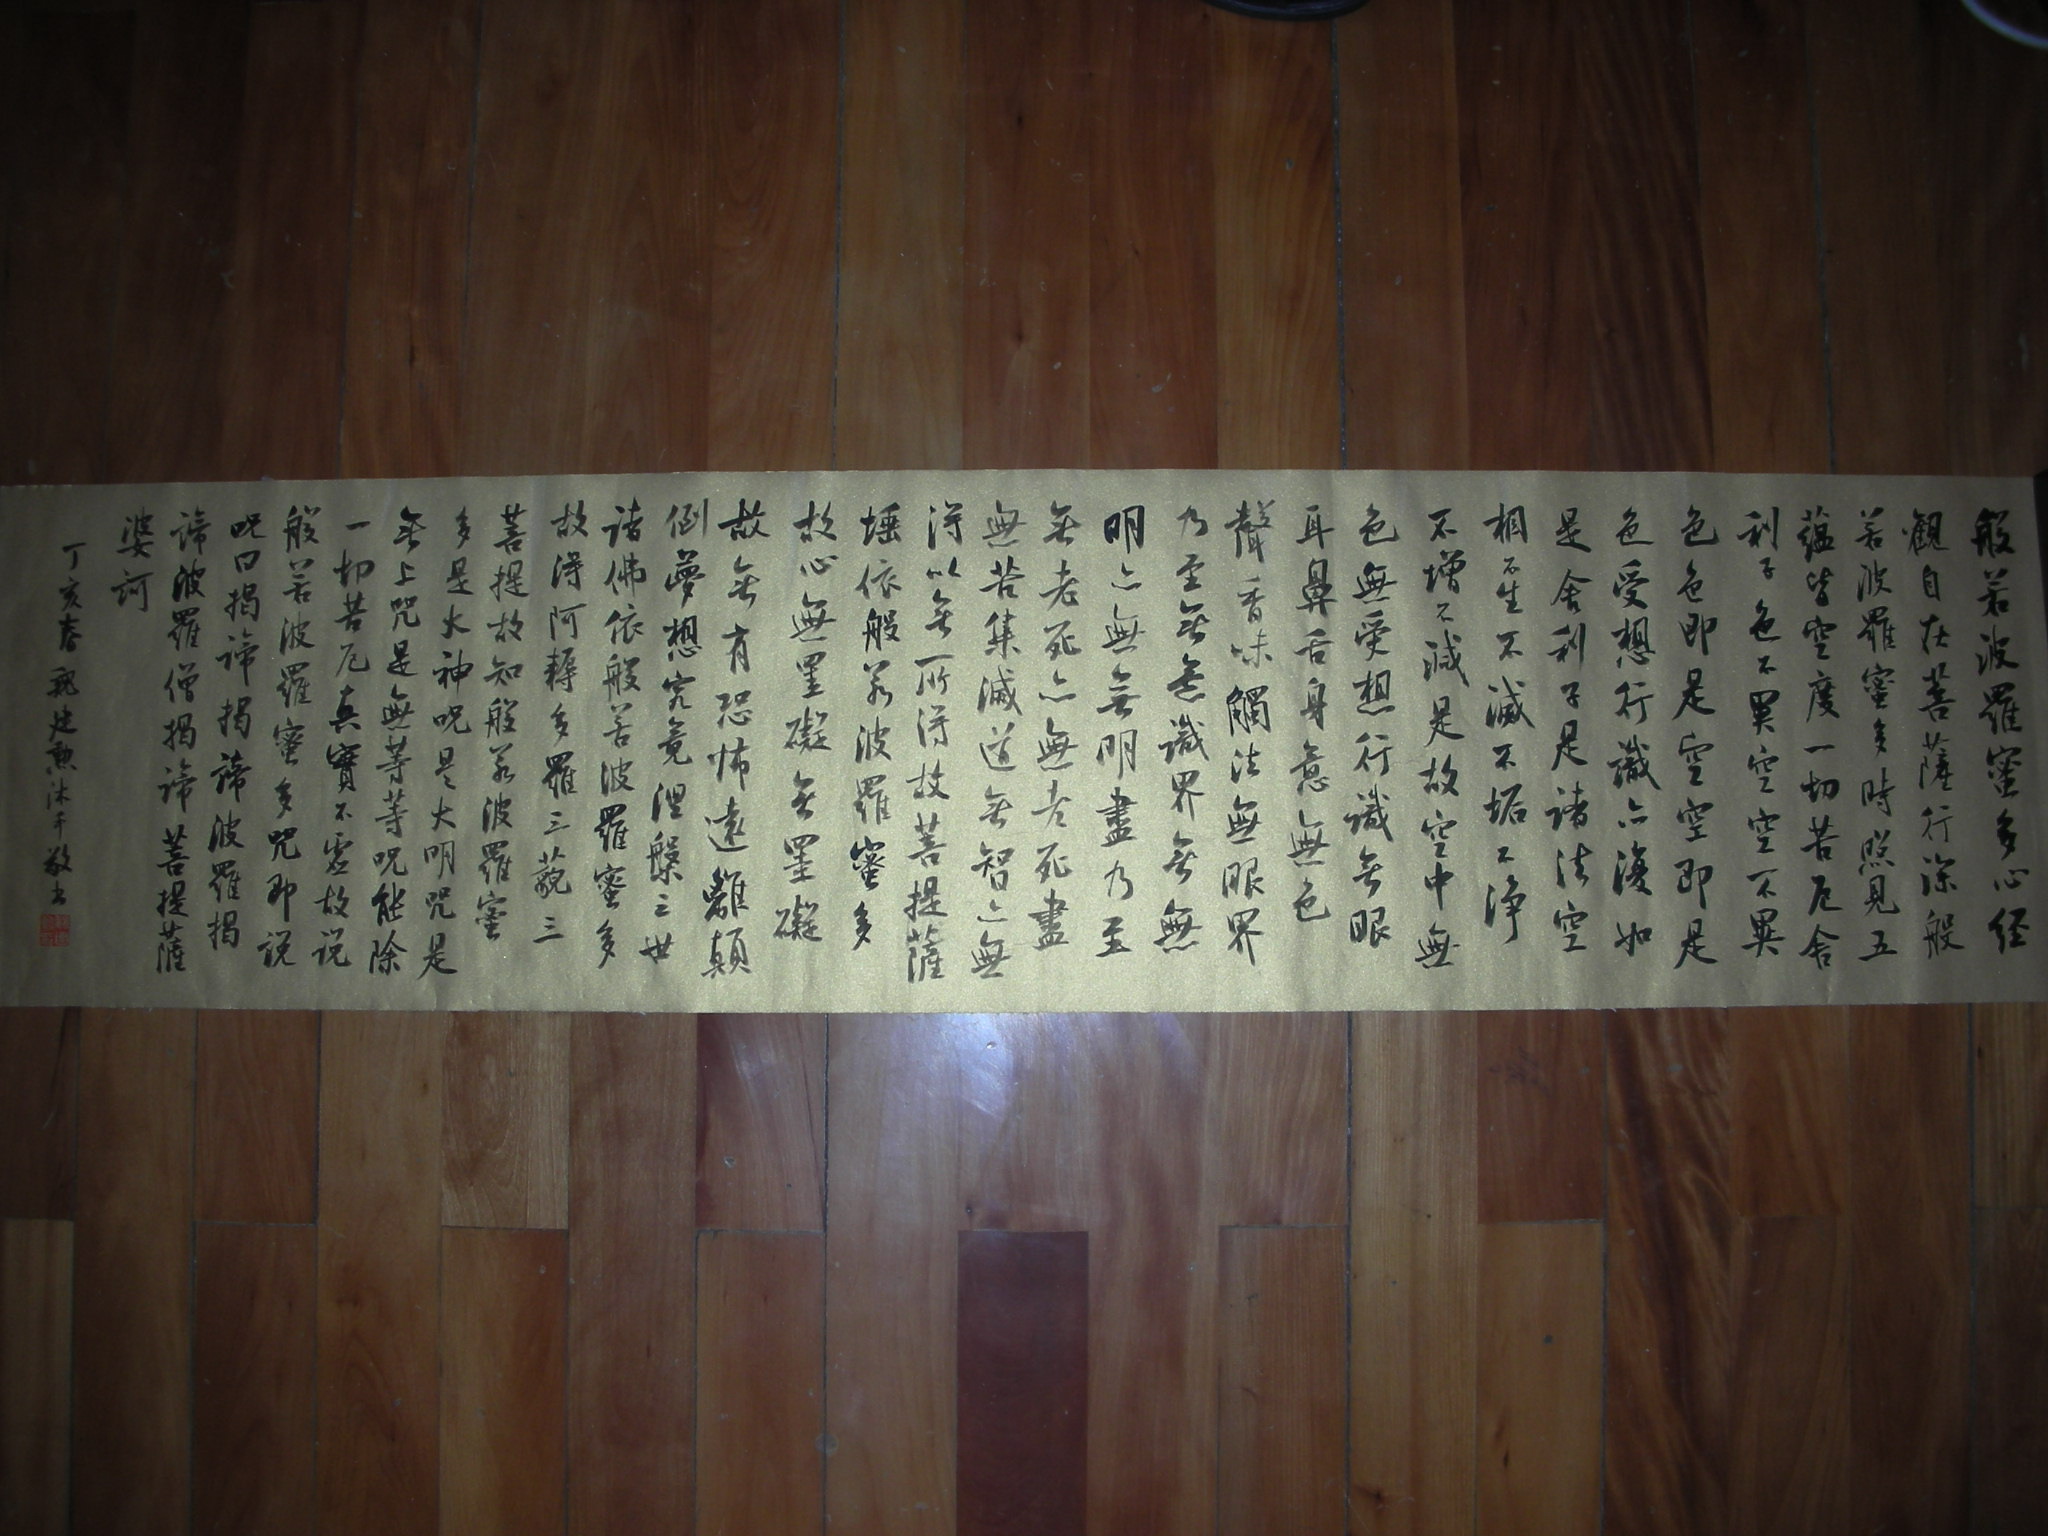 般若波羅蜜多心经
觀自在菩薩行深般
若波羅蜜多時照見五
蕴皆空度一切苦厄舍
利子色不異空空不異
色色即是空空即是
色受想行識亦復如
是舍利子是諸法空
相不生不滅不垢不浄
不增不減是故空中無
色無受想行識无眼
耳鼻舌身意無色
聲香味觸法無眼界
乃至无意識界无無
明亦無无明盡乃至
无老死亦無老死盡
無苦集滅道无智亦無
得以无所得故菩提薩
埵依般若波羅蜜多
故心無罣礙无罣礙
故无有恐怖遠離顛
倒夢想究竟涅槃三世
諸佛依般若波羅蜜多
故得阿耨多羅三藐三
菩提故知般若波羅蜜
多是大神呪是大明咒是
无上咒是無等等呪能除
一切苦厄真實不虚故说
般若波羅蜜多咒即说
呪曰揭諦揭諦波羅揭
諦波羅僧揭諦菩提薩
婆訶
丁亥春魏建勲沐手敬书